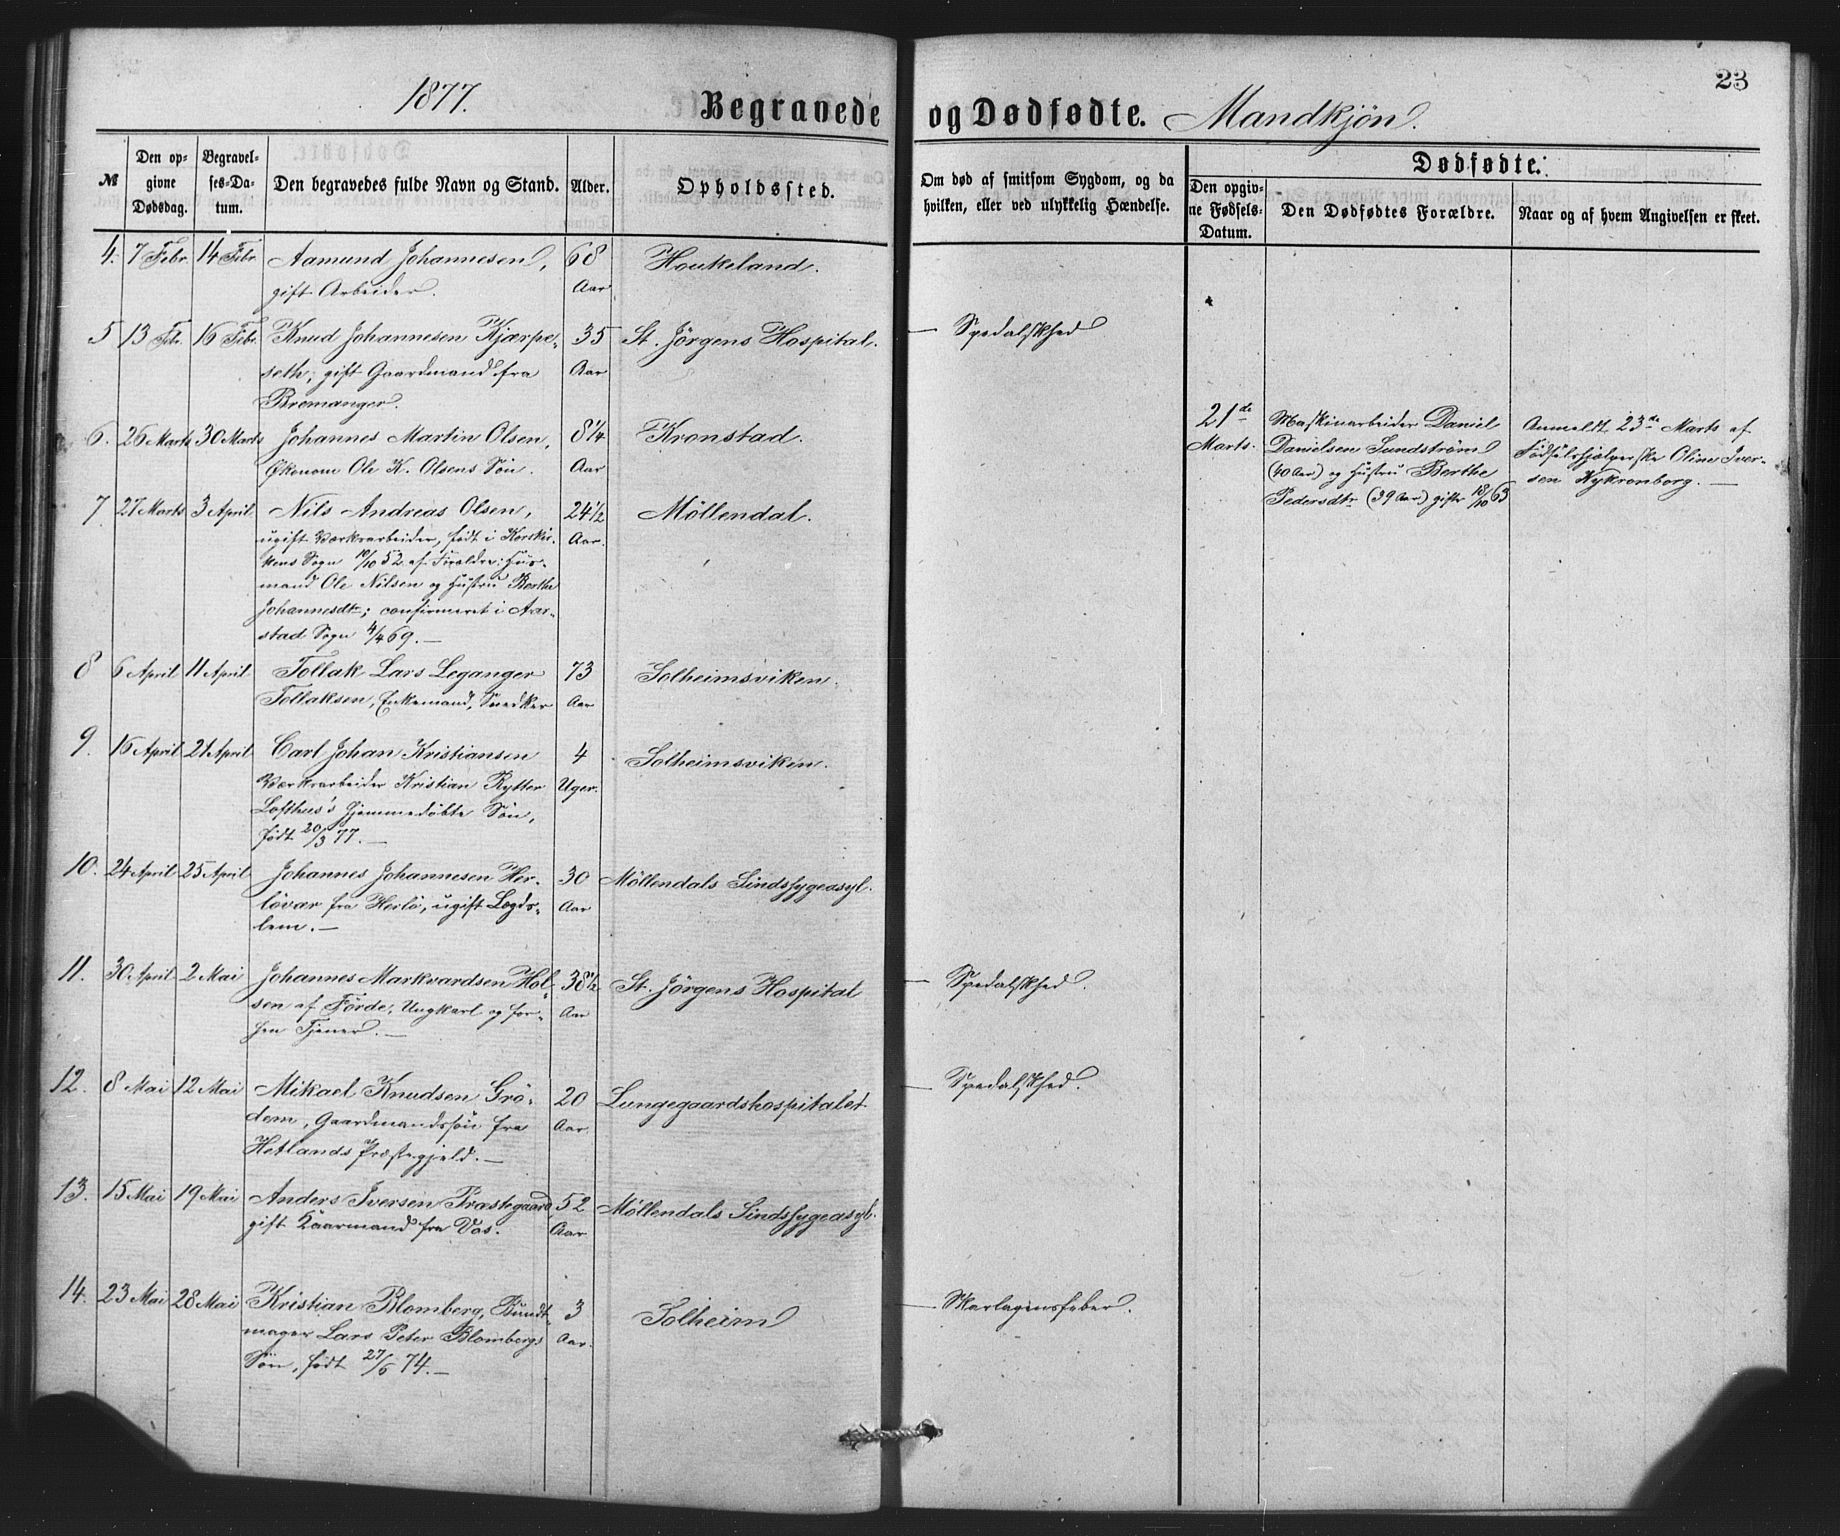 1877.
Begravede og Dødfødte. Mandkjön.
23
№
Den opgivne Dødsdag.
Begravelses-Datum.
Den begravedes fulde Navn og Stand.
Alder.
Opholdssted.
Om død af smitsom Sygdom, og da hvilken, eller ved ulykkelig Hændelse.
Dødfødte.
Den opgivne Fødsels-Datum.
Den Dødfødtes Forældre.
Naar og af hvem Angivelsen er skeet.
4. 7 Febr. 14 Febr. Aamund Johannesen, 68 Houkeland.
gift Arbeider. Aar
5 13 Febr. 16 Febr. Knud Johannesen Kjærpe- 35 St. Jörgens Hospital. — Spedalskhed
seth, gift Gaardmand fra Aar
Bremanger.
6. 26 Marts 30 Marts Johannes Martin Olsen, 8¼ Kronstad.
Økonom Ole K. Olsens Sön. Aar
21de Marts.
Maskinarbeider Daniel
Danielsen Sundström
(40 Aar) og Hustru Berthe
Pedersdtr (39 Aar) gifte 18/10 63
Anmeldt 23de Marts af
Födselshjælperske Oline Iver-
sen Nykronborg. —
7. 27 Marts 3 April Nils Andreas Olsen, 24½ Möllendal.
ugift Værksarbeider, født i Korskir- Aar.
kens Sogn 10/10 52 af Forældre: Hus-
mand Ole Nilsen og Hustru Berthe
Johannesdtr; confirmeret i Aar-
stad Sogn 4/4 69. —
8 6 April 11 April Tollak Lars Leganger 73 Solheimsviken.
Tollaksen, Enkemand, Snedker Aar
9. 16 April 21 April Carl Johan Kristiansen 4 Solheimsviken.
Værksarbeider Kristian Rytter Uger.
Lofthus's hjemmedöbte Sön,
født 20/3 77. —
10. 24 April 25 April Johannes Johannesen Her- 30 Möllendals Sindssygeasyl.
lövær fra Herlö, ugift Lægds- Aar
lem. —
11. 30 April 2 Mai Johannes Markvardsen Hol- 38½ St. Jörgens Hospital — Spedalskhed.
sen af Förde, Ungkarl og for- Aar
hen Tjener. —
12. 8 Mai 12 Mai Mikael Knudsen Grö- 20 Lungegaardshospitalet — Spedalskhed.
dem, Gaardmandssön fra Aar.
Hetlands Præstegjeld. —
13. 15 Mai 19 Mai Anders Iversen Præstegaard, 52 Möllendals Sindssygeasyl.
gift Kaarmand fra Vos. Aar
14. 23 Mai 28 Mai Kristian Blomberg, Bundt- 3 Solheim — Skarlagensfeber.
mager Lars Peter Blombergs Aar.
Sön, født 27/6 74. —